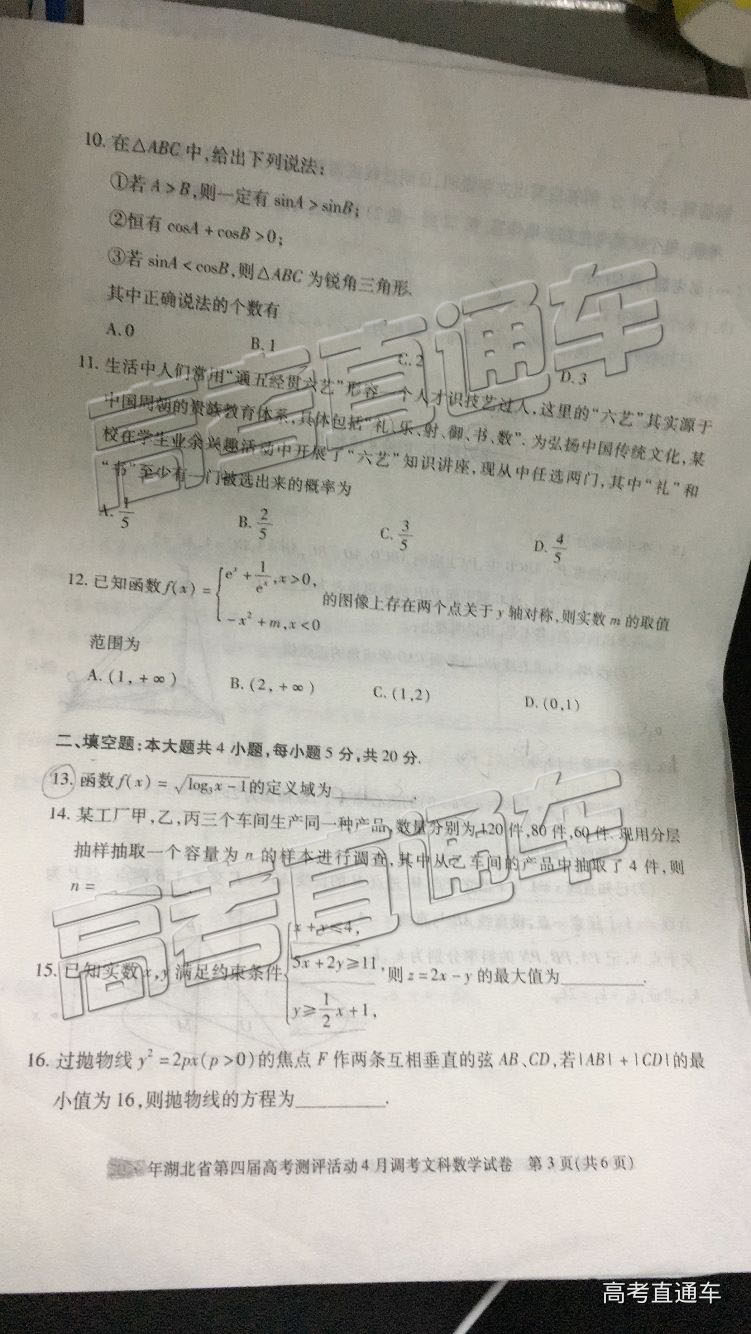 10. 在△ABC 中,给出下列说法:
①若 A>B,则一定有 sinA>sinB;
②恒有 cosA+cosB>0;
③若 sinA<cosB,则△ABC 为锐角三角形.
其中正确说法的个数有
A.0 B.1 C.2 D.3
11. 生活中人们常用“通五经贯六艺”形容一个人才识技艺过人,这里的“六艺”其实源于
中国周朝的贵族教育体系,具体包括“礼、乐、射、御、书、数”. 为弘扬中国传统文化,某
校在学生业余兴趣活动中开展了“六艺”知识讲座,现从中任选两门,其中“礼”和
“书”至少有一门被选出来的概率为
A. 1/5 B. 2/5 C. 3/5 D. 4/5
12. 已知函数 f(x) = { e^x + 1/e^x, x>0,
-x²+m, x<0
的图像上存在两个点关于 y 轴对称,则实数 m 的取值
范围为
A. (1, +∞) B. (2, +∞) C. (1,2) D. (0,1)
二、填空题:本大题共 4 小题,每小题 5 分,共 20 分.
13. 函数 f(x) = √(log₃x-1)的定义域为________.
14. 某工厂甲,乙,丙三个车间生产同一种产品,数量分别为 120 件,80 件,60 件. 现用分层
抽样抽取一个容量为 n 的样本进行调查,其中从乙车间的产品中抽取了 4 件,则
n =
15. 已知实数 x,y 满足约束条件 { x+y≤4,
5x+2y≥11,
y≥1/2 x+1,
则 z=2x-y 的最大值为________.
16. 过抛物线 y²=2px(p>0)的焦点 F 作两条互相垂直的弦 AB、CD,若|AB|+|CD|的最
小值为 16,则抛物线的方程为________.
年湖北省第四届高考测评活动 4 月调考文科数学试卷 第 3 页(共 6 页)
高考直通车
高考直通车
高考直通车